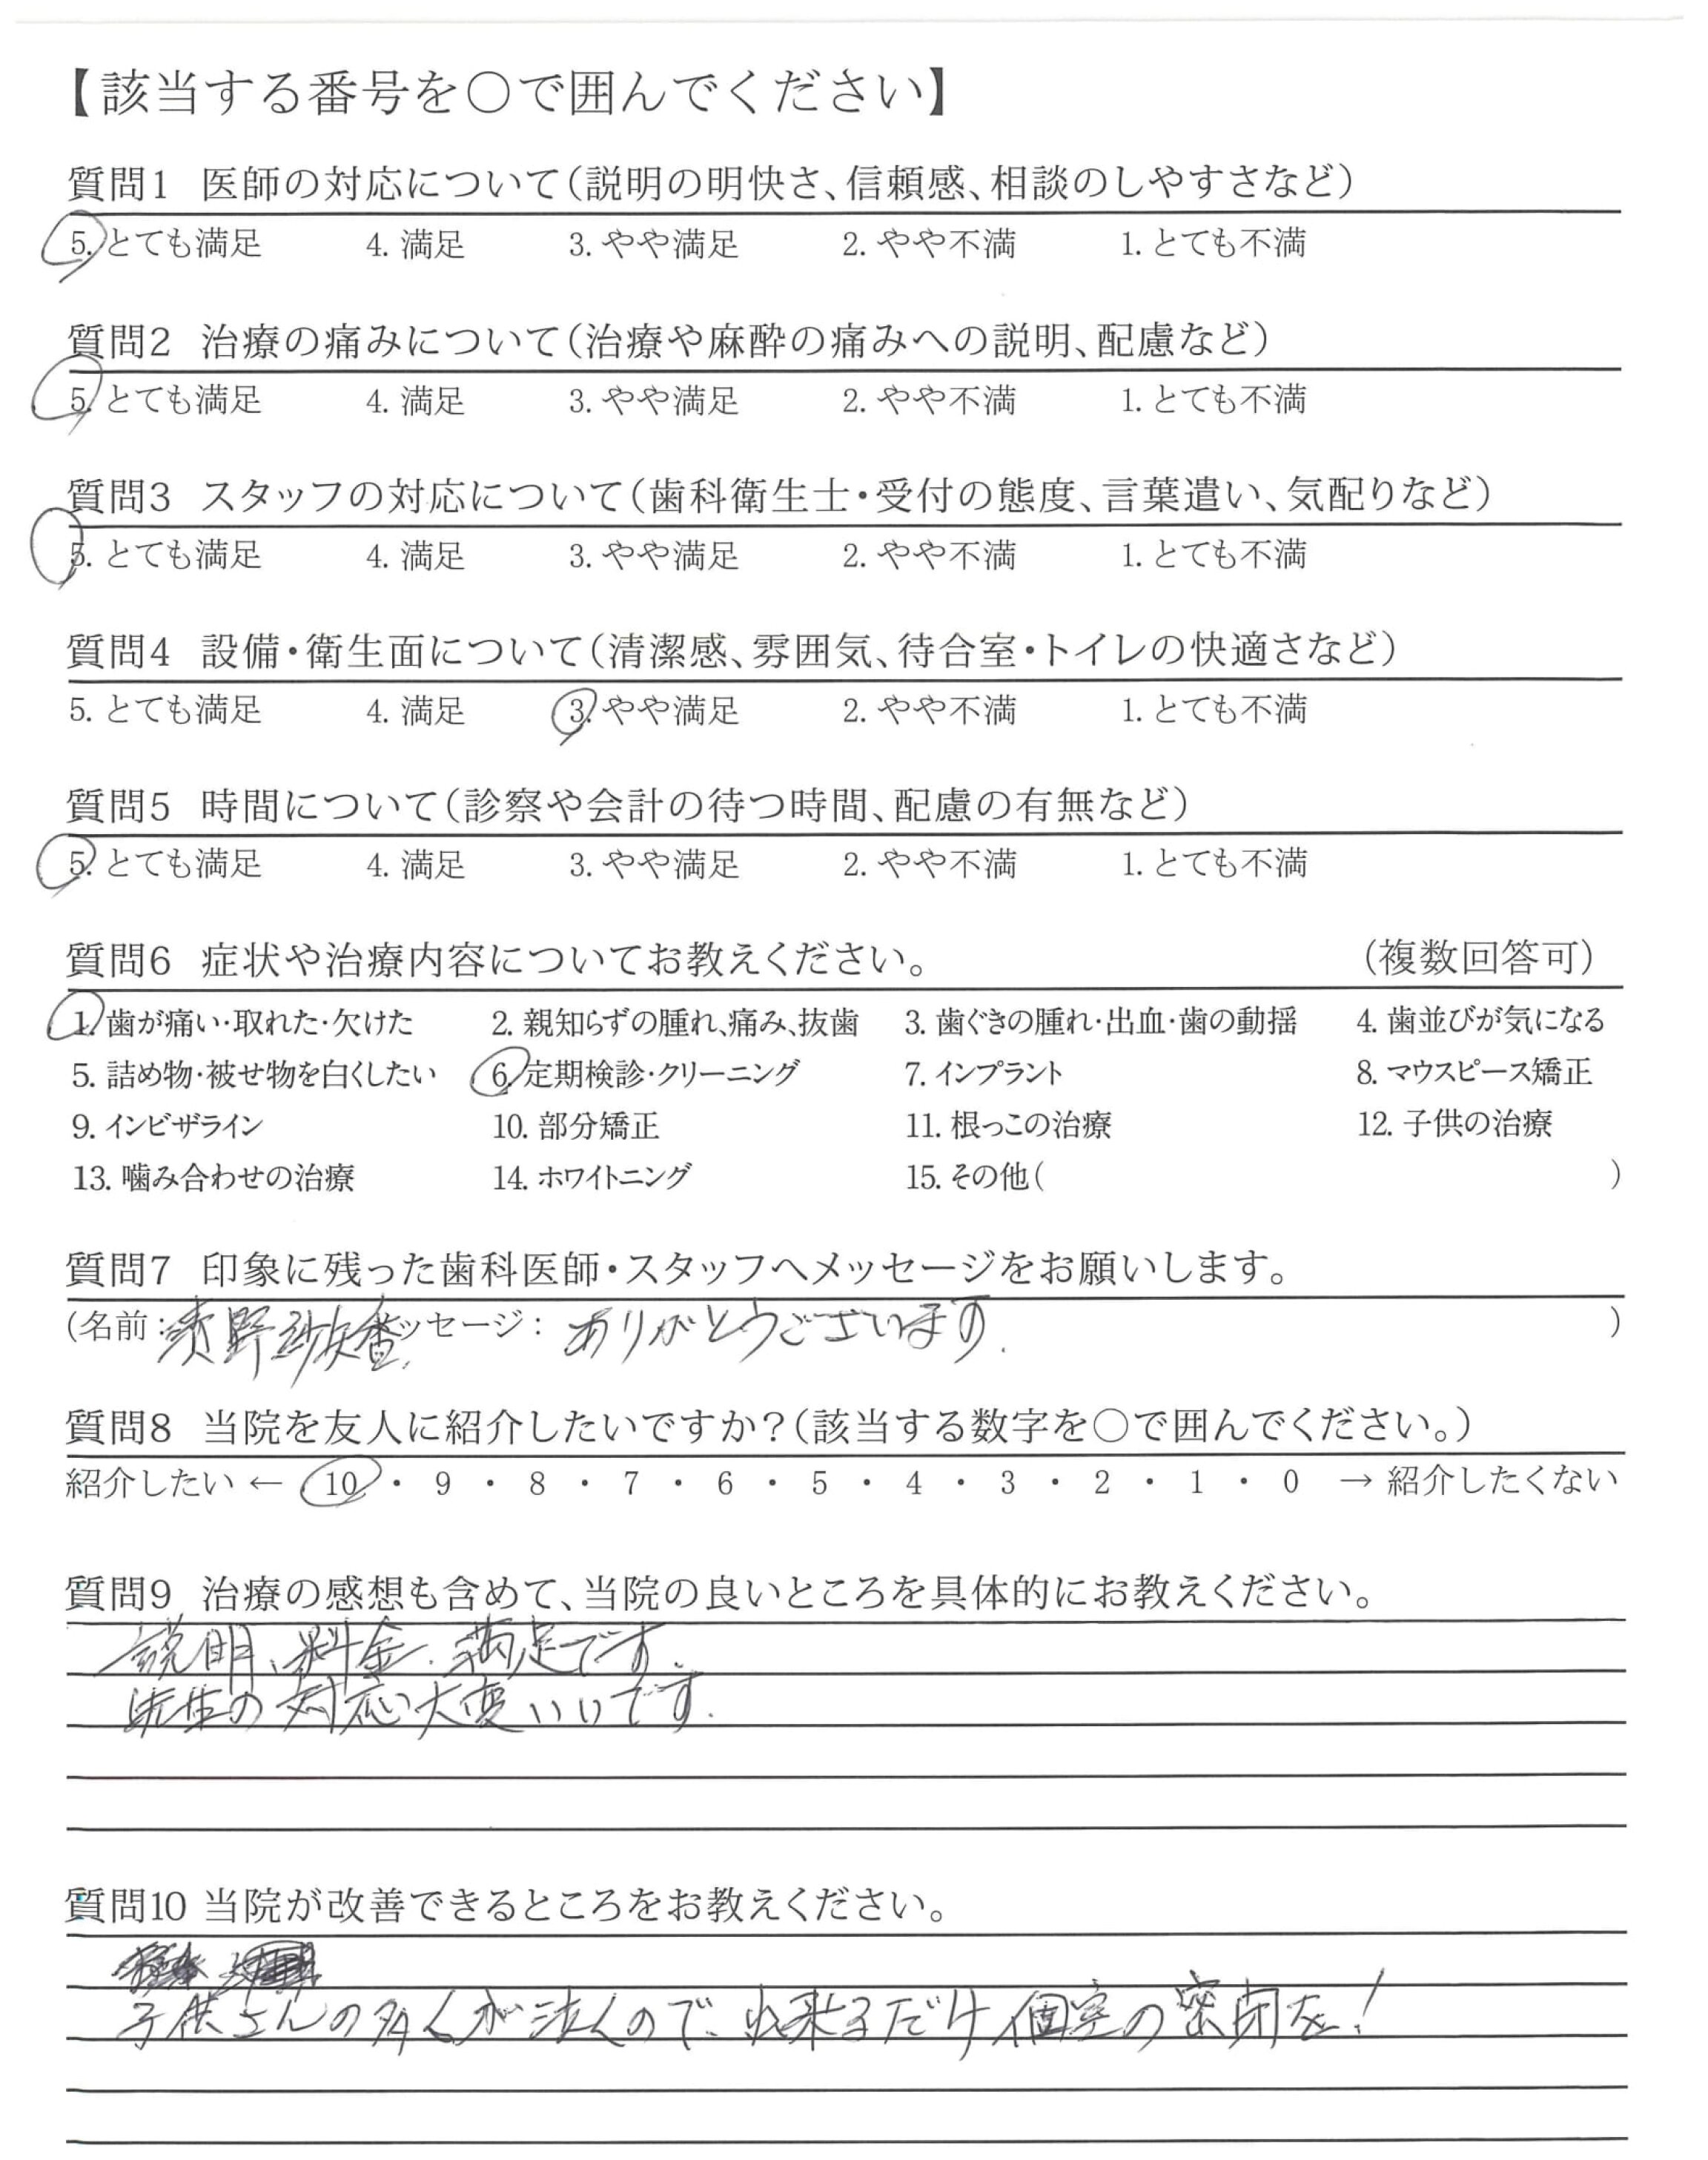 【該当する番号を○で囲んでください】
質問1 医師の対応について(説明の明快さ、信頼感、相談のしやすさなど)
5. とても満足 4. 満足 3. やや満足 2. やや不満 1. とても不満
質問2 治療の痛みについて(治療や麻酔の痛みへの説明、配慮など)
5. とても満足 4. 満足 3. やや満足 2. やや不満 1. とても不満
質問3 スタッフの対応について(歯科衛生士・受付の態度、言葉遣い、気配りなど)
5. とても満足 4. 満足 3. やや満足 2. やや不満 1. とても不満
質問4 設備・衛生面について(清潔感、雰囲気、待合室・トイレの快適さなど)
5. とても満足 4. 満足 3. やや満足 2. やや不満 1. とても不満
質問5 時間について(診察や会計の待つ時間、配慮の有無など)
5. とても満足 4. 満足 3. やや満足 2. やや不満 1. とても不満
質問6 症状や治療内容についてお教えください。 (複数回答可)
1. 歯が痛い・取れた・欠けた 2. 親知らずの腫れ、痛み、抜歯 3. 歯ぐきの腫れ・出血・歯の動揺 4. 歯並びが気になる
5. 詰め物・被せ物を白くしたい 6. 定期検診・クリーニング 7. インプラント 8. マウスピース矯正
9. インビザライン 10. 部分矯正 11. 根っこの治療 12. 子供の治療
13. 噛み合わせの治療 14. ホワイトニング 15. その他( )
質問7 印象に残った歯科医師・スタッフへメッセージをお願いします。
(名前: 野 ッセージ: ありがとうございます. )
質問8 当院を友人に紹介したいですか?(該当する数字を○で囲んでください。)
紹介したい ← 10 ・ 9 ・ 8 ・ 7 ・ 6 ・ 5 ・ 4 ・ 3 ・ 2 ・ 1 ・ 0 → 紹介したくない
質問9 治療の感想も含めて、当院の良いところを具体的にお教えください。
説明、料金、満足です.
先生の対応大変いいです.
質問10 当院が改善できるところをお教えください。
子供さんの が ので、出来るだけ個室の密閉を!